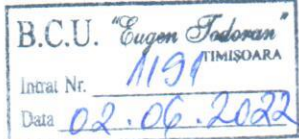 B.C.U. "Eugen Todoran"
TIMIȘOARA
Intrat Nr. 1191
Data 02.06.2022